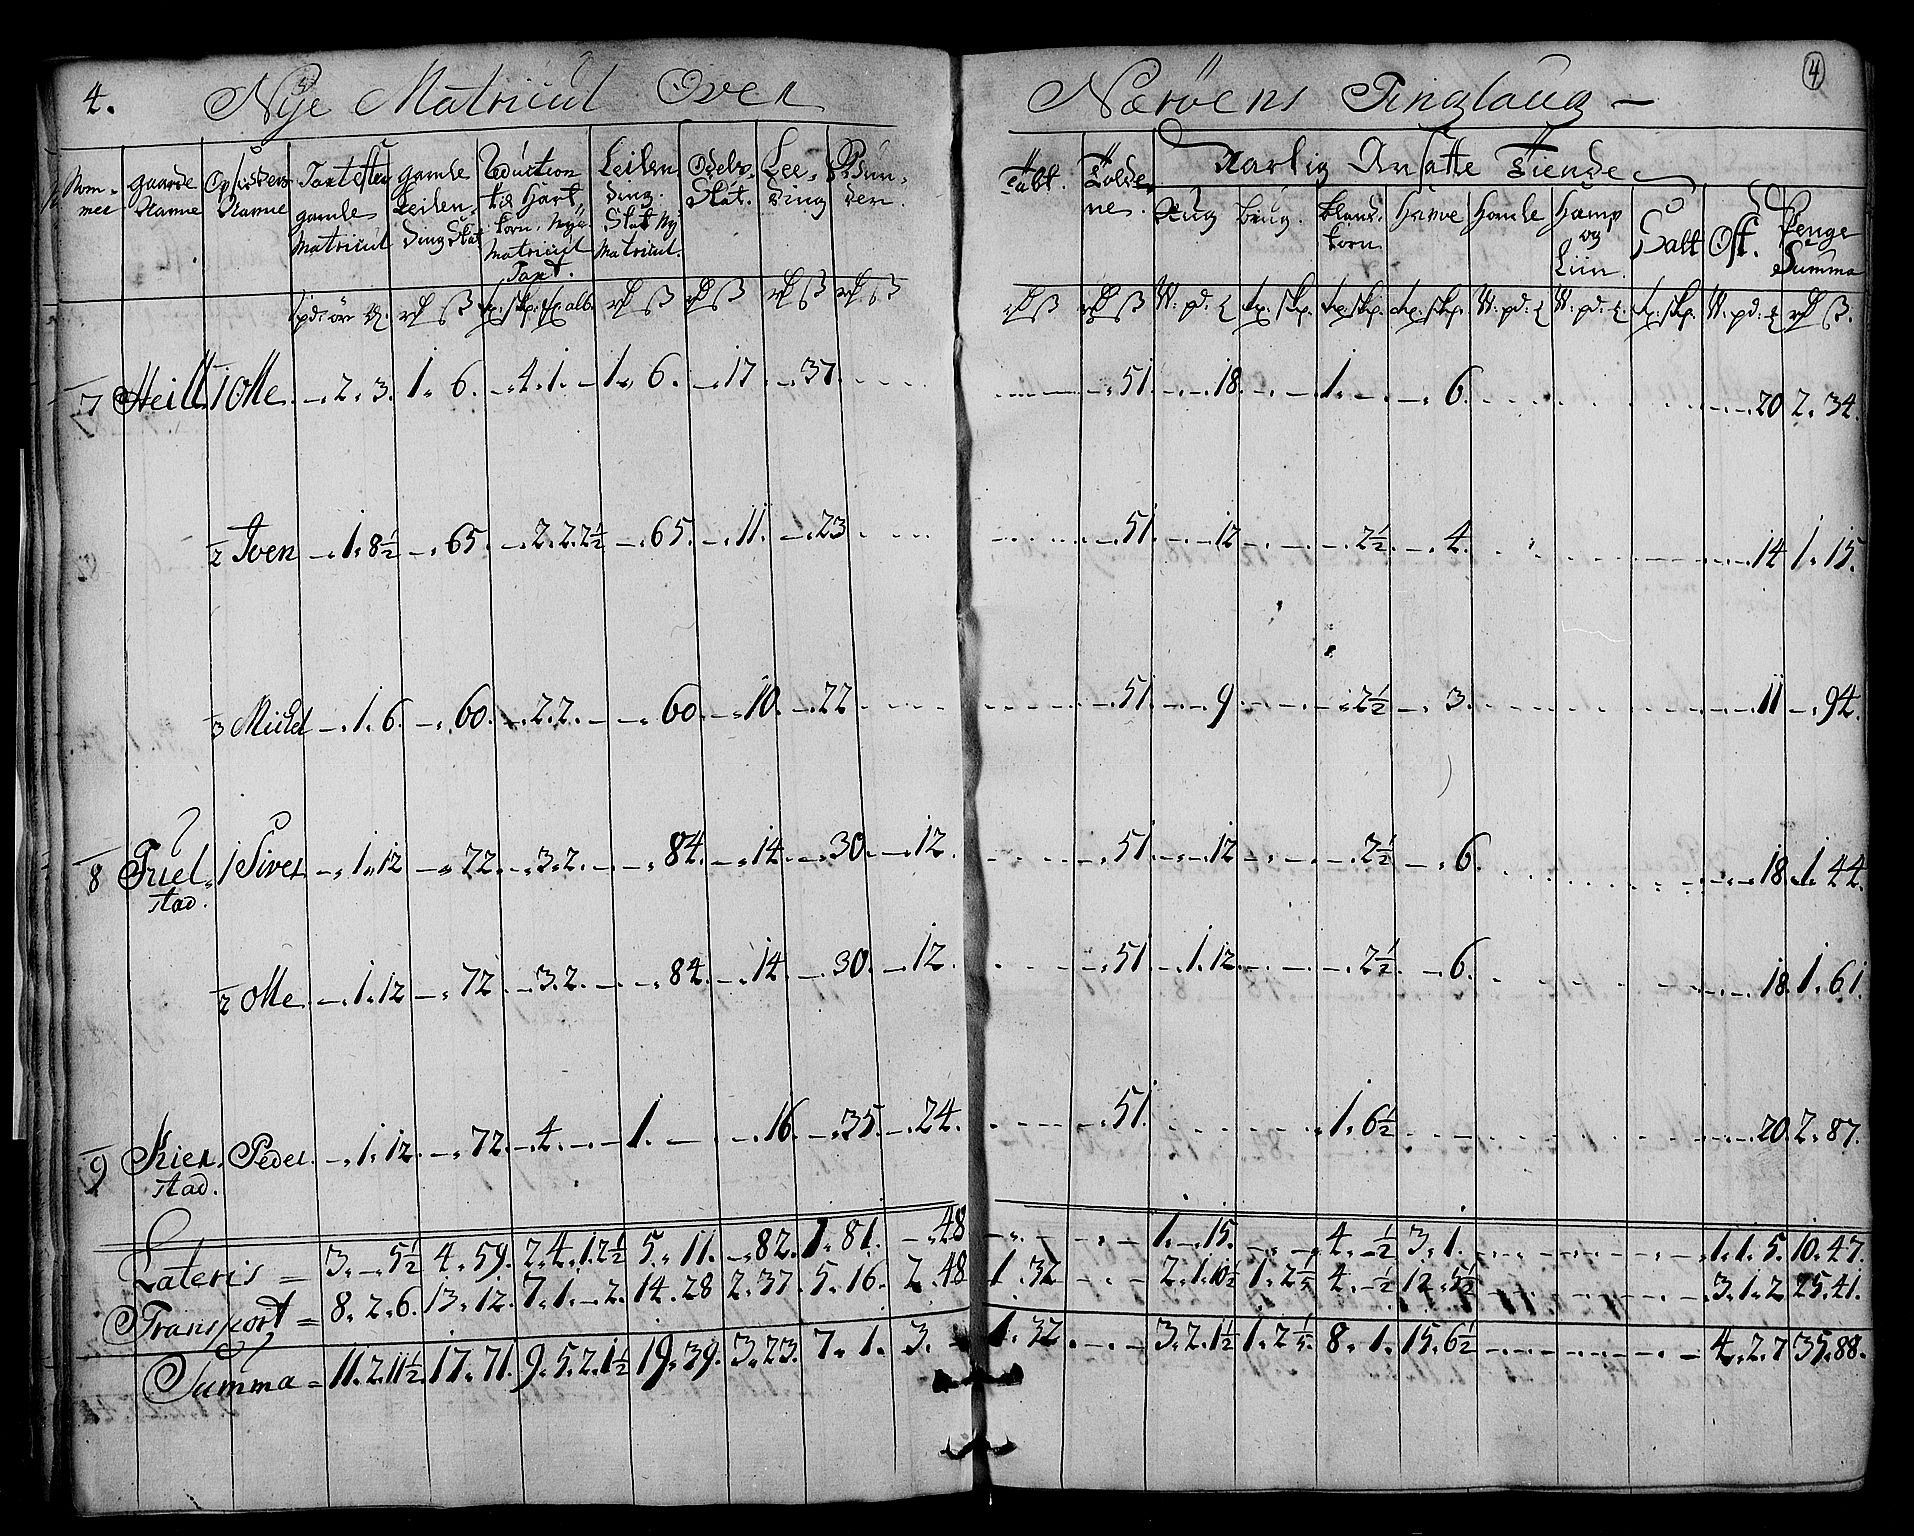 4. Nye Matricul Over Nærøens Tinglaug – 4
Nom- mer | gaarde Nafne | Opsidders Nafne | gamle Matricul | gamle Leilen- ding Skat | Reduction til Hart- korn, Nye Matricul Taxt. | Leilen ding Skat Ny Matricul. | Odels- Skat. | Lee- ding | | Tabt. | | Aarlig Ansatte Tiende
Rug | Biug. | bland- korn | Hafve | Homle | Hamp og Liin. | Salt | Ost. | Penge Summa
7 Heill 1 Olle. – . 2 . 3. 1 . 6. – . 4 . 1. – 1 . 6. – . 17 – . 37. – . 51. – . 18. 1. – . 6. – . 20 2 . 34.
2 Iven – . 1 . 8½ – . 65. – . 2 . 2 . 2½ – . 65. – . 11. – . 23 – . 51. – . 12 – . 2½ – . 4. – . 14 1 . 15.
3 – . 1 . 6. – . 60. – . 2 . 2. – . 60. – . 10. – . 22 – . 51. – . 9. – . 2½ – . 3. – . 11 – . 94.
8 1 Siver – . 1 . 12 – . 72. – . 3 . 2. – . 84. – . 14. – . 30. – . 12. – . 51. – . 12 – . 2½ – . 6. – . 18. 1 . 44.
stad.
2 Olle – . 1 . 12 – . 72 – . 3 . 2. – . 84. – . 14. – . 30. – . 12. – . 51. – . 1 . 12. – . 2½ – . 6. – . 18. 1 . 61.
9 Peder. – . 1 . 12. – . 72. – . 4. – 1. – . 16. – . 35. – . 24. – . 51. – . 1 . 6½ – . 20. 2 . 87.
stad.
Lateris = 3 . – . 5½ 4 . 59. 2 . 4 . 1 . 2½ 5 . 11. – . 82. 1 . 81. – . 48 – 1 . – . 15. 4 . – ½ 3 . 1. 1 . 1 . 5. 10 . 47.
Transport = 8 . 2 . 6. 13 . 12. 7 . 1 . – 2. 14 . 28 2 . 37. 5 . 16. 2 . 48 1 . 32 2 . 1 . 10½ 1 . 2½ 4 . – ½ 12 . 5½ 3 . 1 . 2 25 . 41.
Summa = 11 . 2 . 11½ 17 . 71. 9 . 5 . 2 . 1½ 19 . 39. 3 . 23. 7 . 1. 3. – 1 . 32 3 . 2 . 1½ 1 . 2½ 8 . 1. 15 . 6½ 4 . 2 . 7 35 . 88.